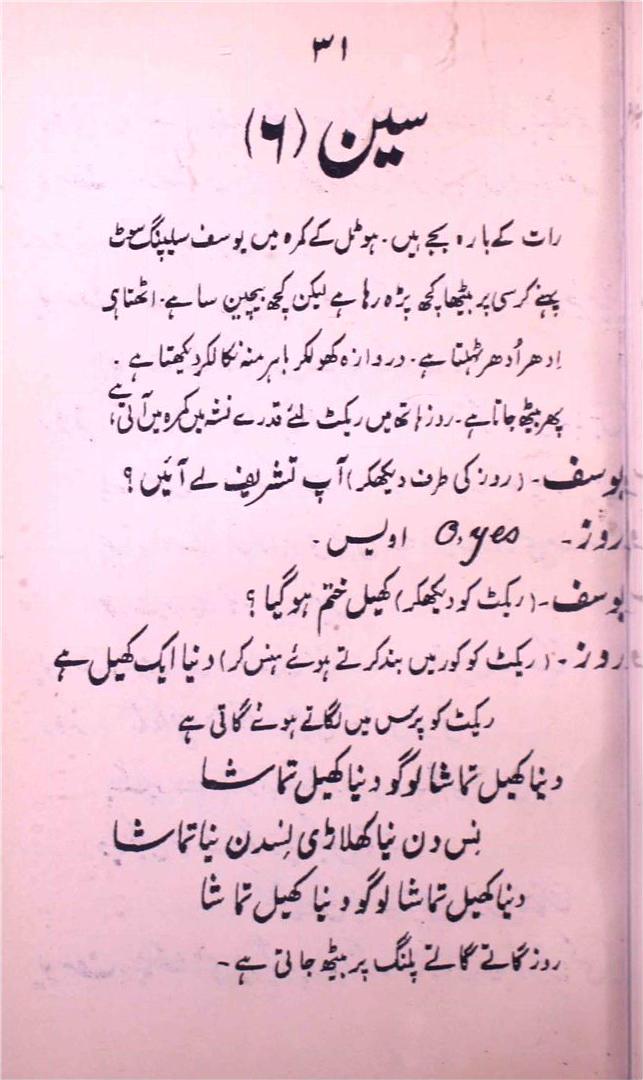 ۳۱
سین (۶)
رات کے بارہ بجے ہیں۔ ہوٹل کے کمرہ میں یوسف سلیپنگ سوٹ
پہنے کرسی پر بیٹھا کچھ پڑہ رہا ہے لیکن کچھ بیچین سا ہے۔ اٹھتا ہی
اِدھر اُدھر ٹہلتا ہے۔ دروازہ کھولکر باہر منہ نکالکر دیکھتا ہے۔
پھر بیٹھ جاتا ہے۔ روز ہاتھ میں ریکٹ لئے قدرے نشہ میں کمرہ میں آتی ہے
یوسف۔ (روز کی طرف دیکھکر) آپ تشریف لے آئیں؟
روز۔ O, yes اویس۔
یوسف۔ (ریکٹ کو دیکھکر) کھیل ختم ہو گیا؟
روز۔ (ریکٹ کو کور میں بند کرتے ہوئے ہنس کر) دنیا ایک کھیل ہے
ریکٹ کو پرس میں لگاتے ہوئے گاتی ہے
دنیا کھیل تماشا لوگو دنیا کھیل تماشا
نِس دن نیا کھلاڑی نِسدن نیا تماشا
دنیا کھیل تماشا لوگو دنیا کھیل تماشا
روز گاتے گاتے پلنگ پر بیٹھ جاتی ہے۔